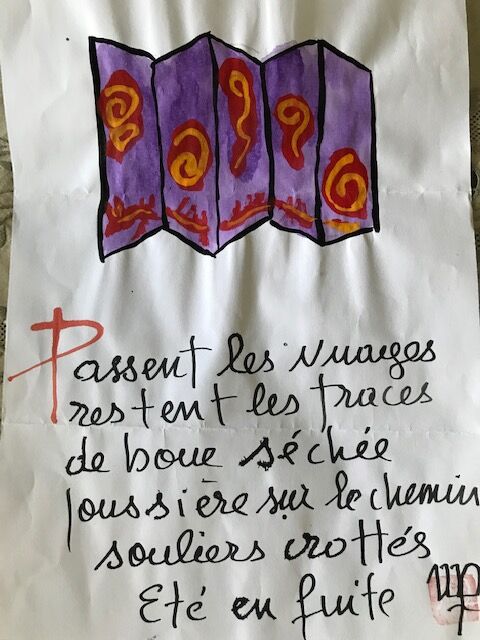 Passent les nuages
restent les traces
de boue séchée
poussière sur le chemin
souliers crottés
Eté en fuite